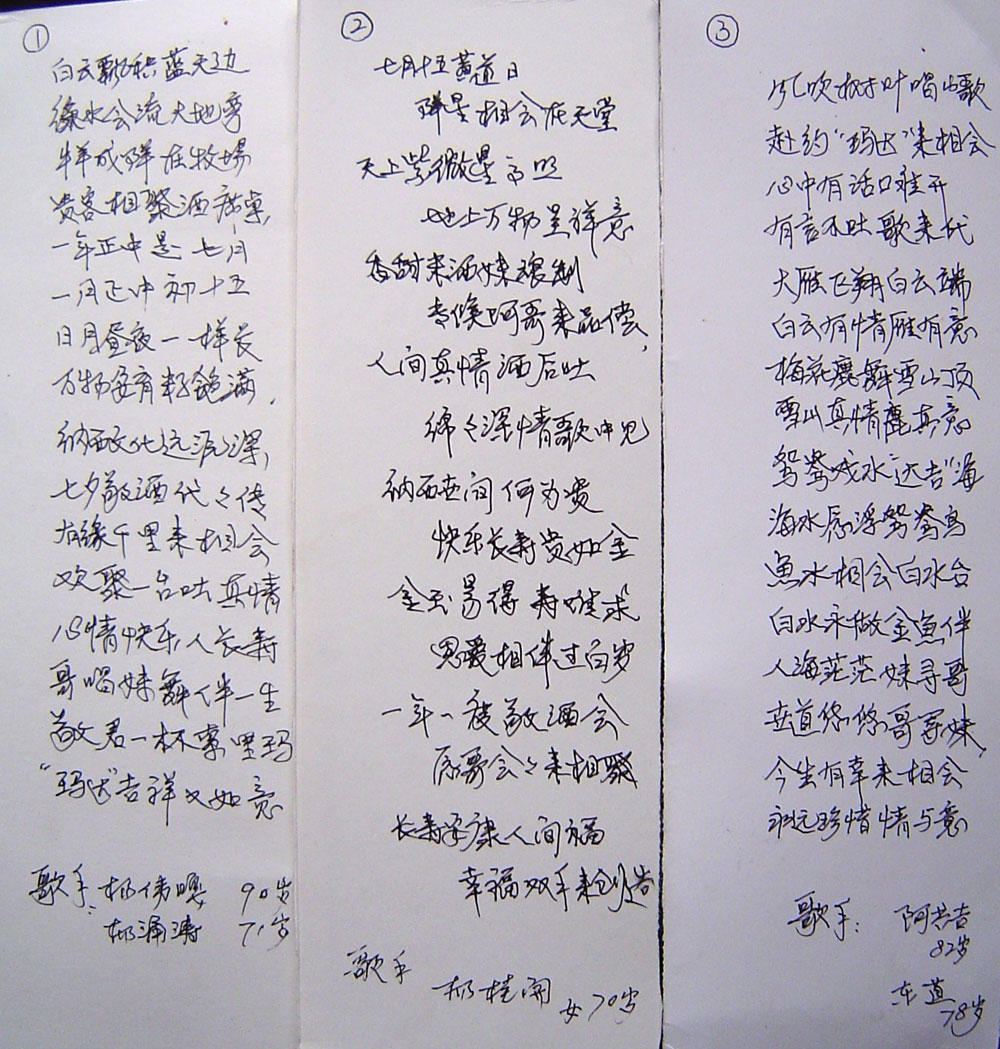 ①
白云飘积蓝天边
绿水会流大地湾
牛羊成群在牧场
贵客相聚酒席桌,
一年正中是七月
一月正中初十五
日月昼夜一样长
万物孕育籽饱满,
纳西文化远流深,
七夕敬酒代々传
有缘千里来相会
欢聚一台吐真情
心情快乐人长寿
哥唱妹舞伴一生
敬君一杯窨哩玛
“玛达”吉祥又如意
歌手: 杨伟 90岁
杨涌涛 71岁
②
七月十五黄道日
群星相会在天堂
天上紫微星高照
地上万物呈祥意
香甜米酒妹酿制
专候阿哥来品偿,
人间真情酒后吐
绵々深情歌中见
纳西世间何为贵
快乐长寿贵如金
金玉易得寿难求
恩爱相伴过百岁
一年一度敬酒会
愿哥会々来相聚
长寿享康人间福
幸福双手来创造
歌手
杨桂开
女70岁
③
风吹树叶唱山歌
赴约“玛达”来相会
心中有话口难开
有言不吐歌来代
大雁飞翔白云端
白云有情雁有意
梅花鹿舞雪山顶
雪山真情鹿真意
鸳鸯戏水“达吉”海
海水愿浮鸳鸯鸟
鱼水相会白水台
白水永做金鱼伴
人海茫茫妹寻哥
世道悠悠哥寻妹,
今生有幸来相会
永远珍惜情与意
歌手: 阿共吉
82岁
东道
78岁